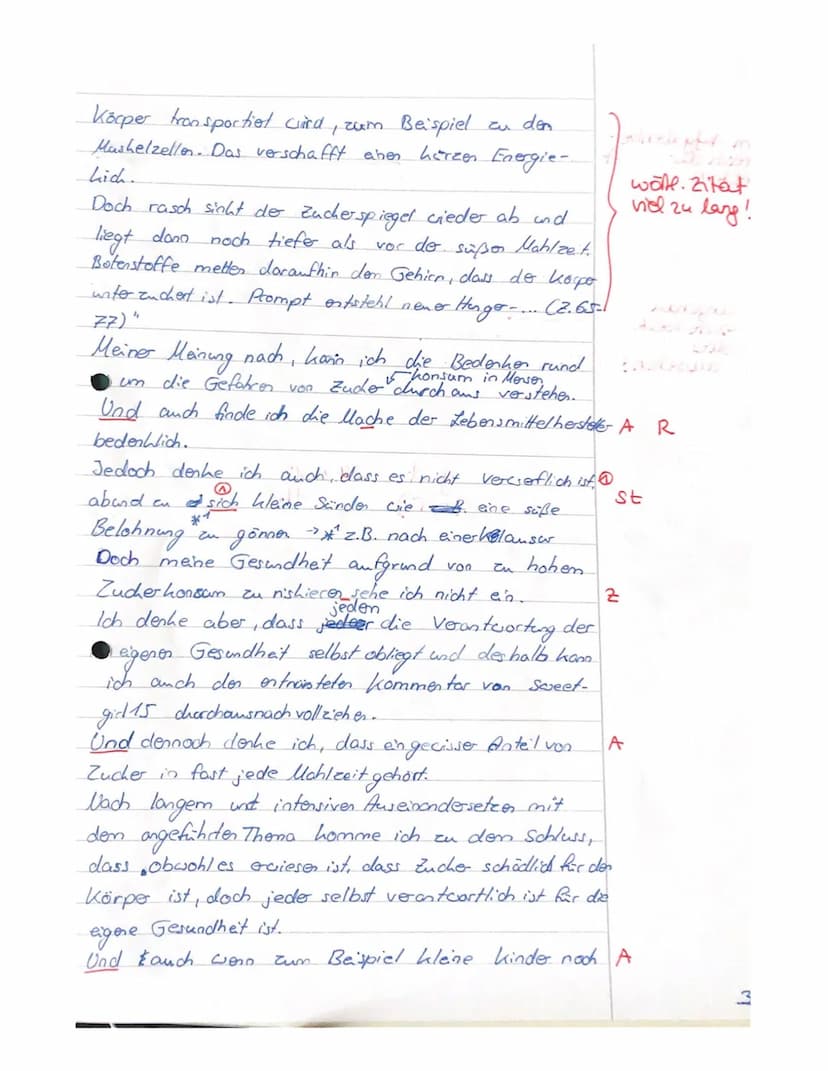 Körper transportiet wird, zum Beispiel zu den
Muskelzellen. Das verschafft einen kurzen Energie-
kick.
Doch rasch sinkt der Zuckerspiegel wieder ab und
liegt dann noch tiefer als vor der süßen Mahlzeit.
Botenstoffe melden daraufhin dem Gehirn, dass der Körper
unterzuckert ist. Prompt entsteht neuer Hunger-... (Z.65-
77)"
wötl. Zitat
viel zu lang!
Meiner Meinung nach, kann ich die Bedenken rund
konsum in Mensen
um die Gefahren von Zucker durchaus verstehen.
Und auch finde ich die Mache der Lebensmittelhersteller A R
bedenklich.
Jedoch denke ich auch, dass es nicht verwerflich ist, ①
abund zu ① sich kleine Sünden wie eine süße St
Belohnung *¹ zu gönnen → *¹ z.B. nach einer Klausur
Doch meine Gesundheit aufgrund von zu hohem
Zuckerkonsum zu riskieren sehe ich nicht ein. Z
jeden
Ich denke aber, dass jeder die Verantwortung der
eigenen Gesundheit selbst obliegt und deshalb kann
ich auch den entrüsteten Kommentar von Sweet-
girl15 durchausnachvollziehen.
Und dennoch denke ich, dass ein gewisser Anteil von A
Zucker in fast jede Mahlzeit gehört.
Nach langem und intensiven Auseinandersetzen mit
dem angeführten Thema komme ich zu dem Schluss,
dass, obwohl es erwiesen ist, dass Zucker schädlich für den
Körper ist, doch jeder selbst verantwortlich ist für die
eigene Gesundheit ist.
Und auch wenn zum Beispiel kleine Kinder noch A
3